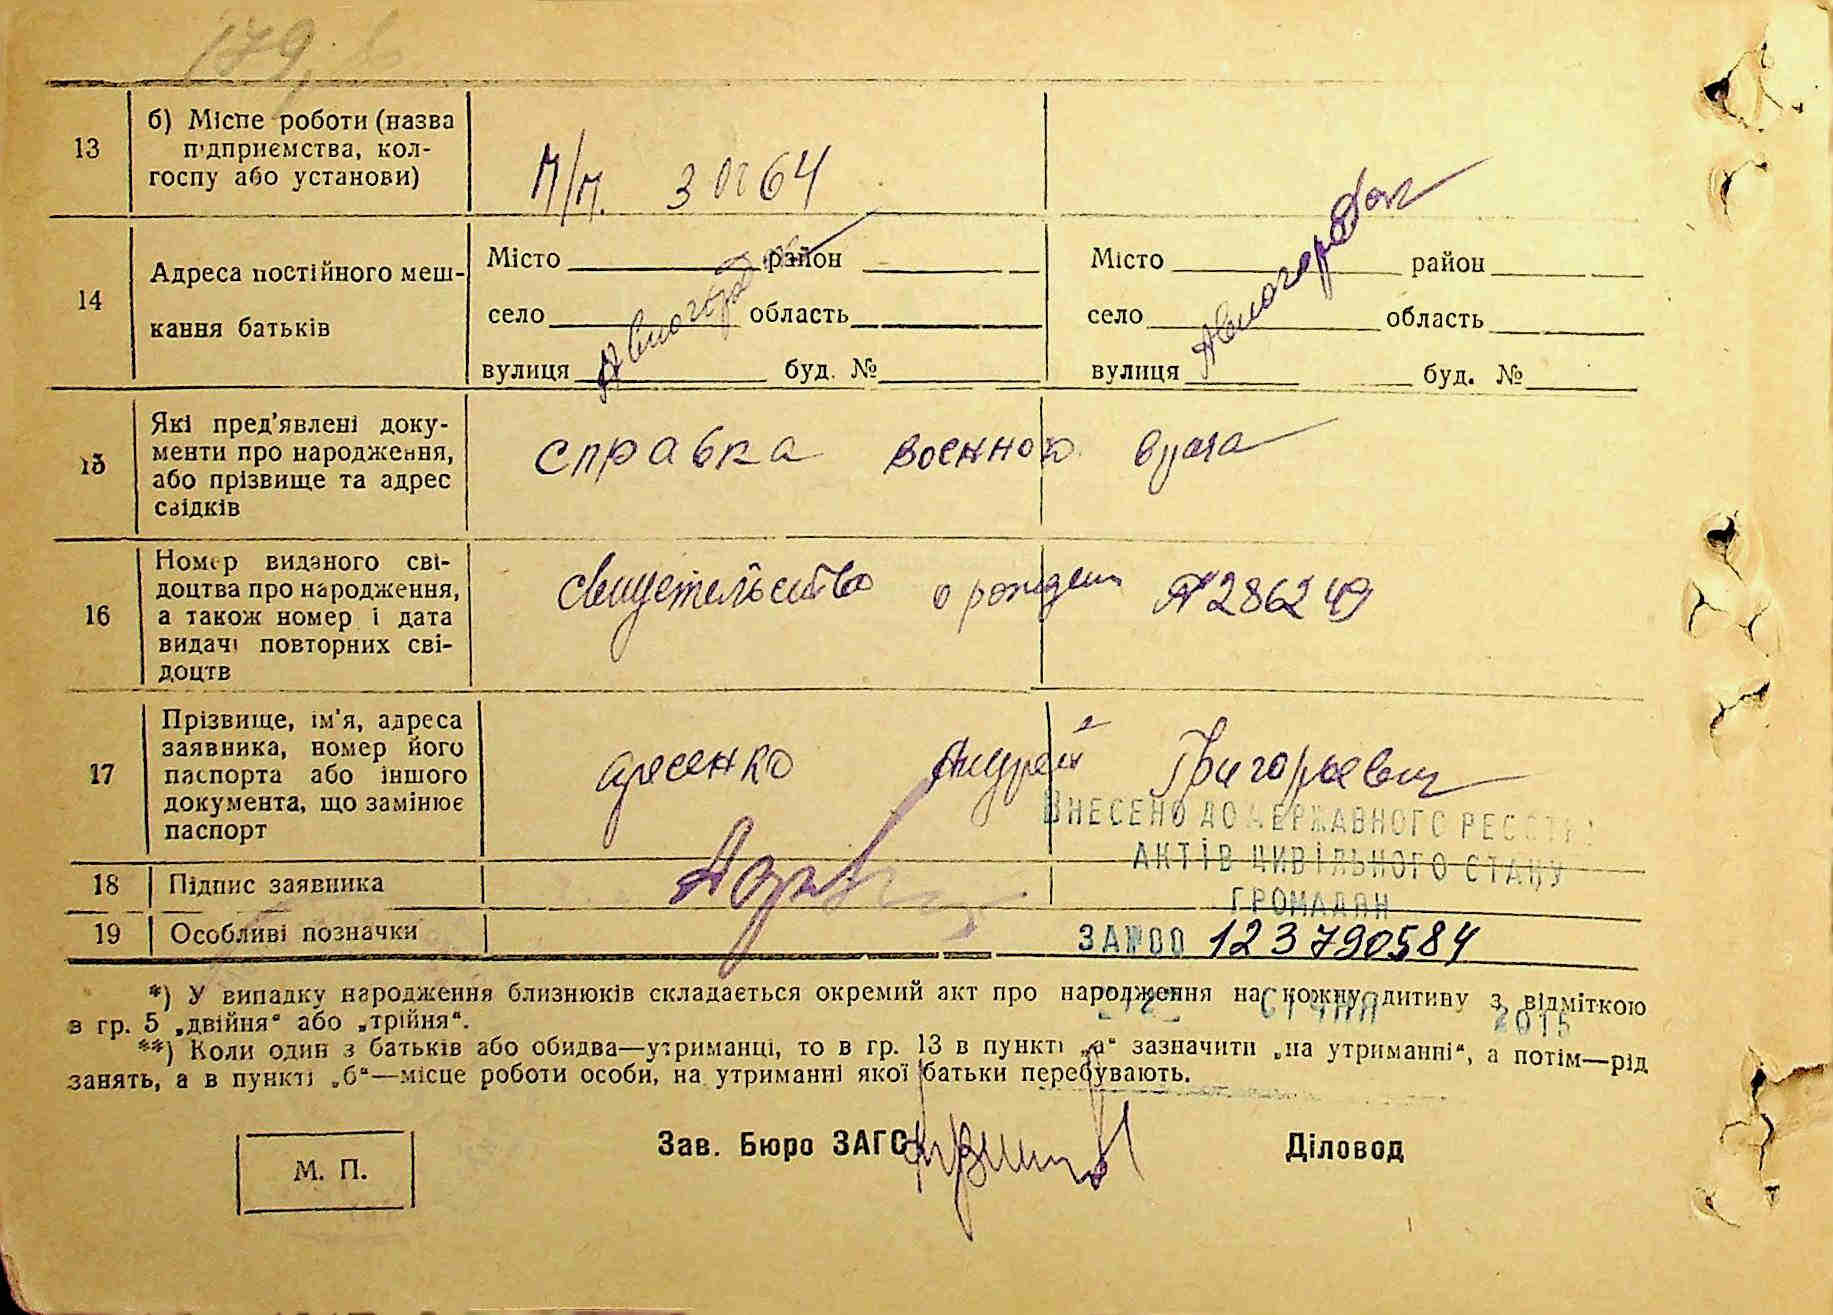 179
13 б) Місце роботи (назва підприємства, колгоспу або установи)
П/П. 30064
14 Адреса постійного мешкання батьків
Місто район Місто район
село область село область
вулиця буд. № вулиця буд. №
Авиагородок Авиагородок
15 Які пред'явлені документи про народження, або прізвище та адрес свідків
справка военного врача
16 Номер виданого свідоцтва про народження, а також номер і дата видачі повторних свідоцтв
свидетельство о рождении № 286249
17 Прізвище, ім'я, адреса заявника, номер його паспорта або іншого документа, що замінює паспорт
Андрей Григорьевич
ВНЕСЕНО ДО ДЕРЖАВНОГО РЕЄСТРУ
АКТІВ ЦИВІЛЬНОГО СТАНУ
ГРОМАДЯН
18 Підпис заявника
19 Особливі позначки
ЗА №00 123790584
*) У випадку народження близнюків складається окремий акт про народження на кожну дитину з відміткою
в гр. 5 „двійня“ або „трійня“.
січня 2015
**) Коли один з батьків або обидва—утриманці, то в гр. 13 в пункті „а“ зазначити „на утриманні“, а потім—рід
занять, а в пункті „б“—місце роботи особи, на утриманні якої батьки перебувають.
Зав. Бюро ЗАГС Діловод
М. П.